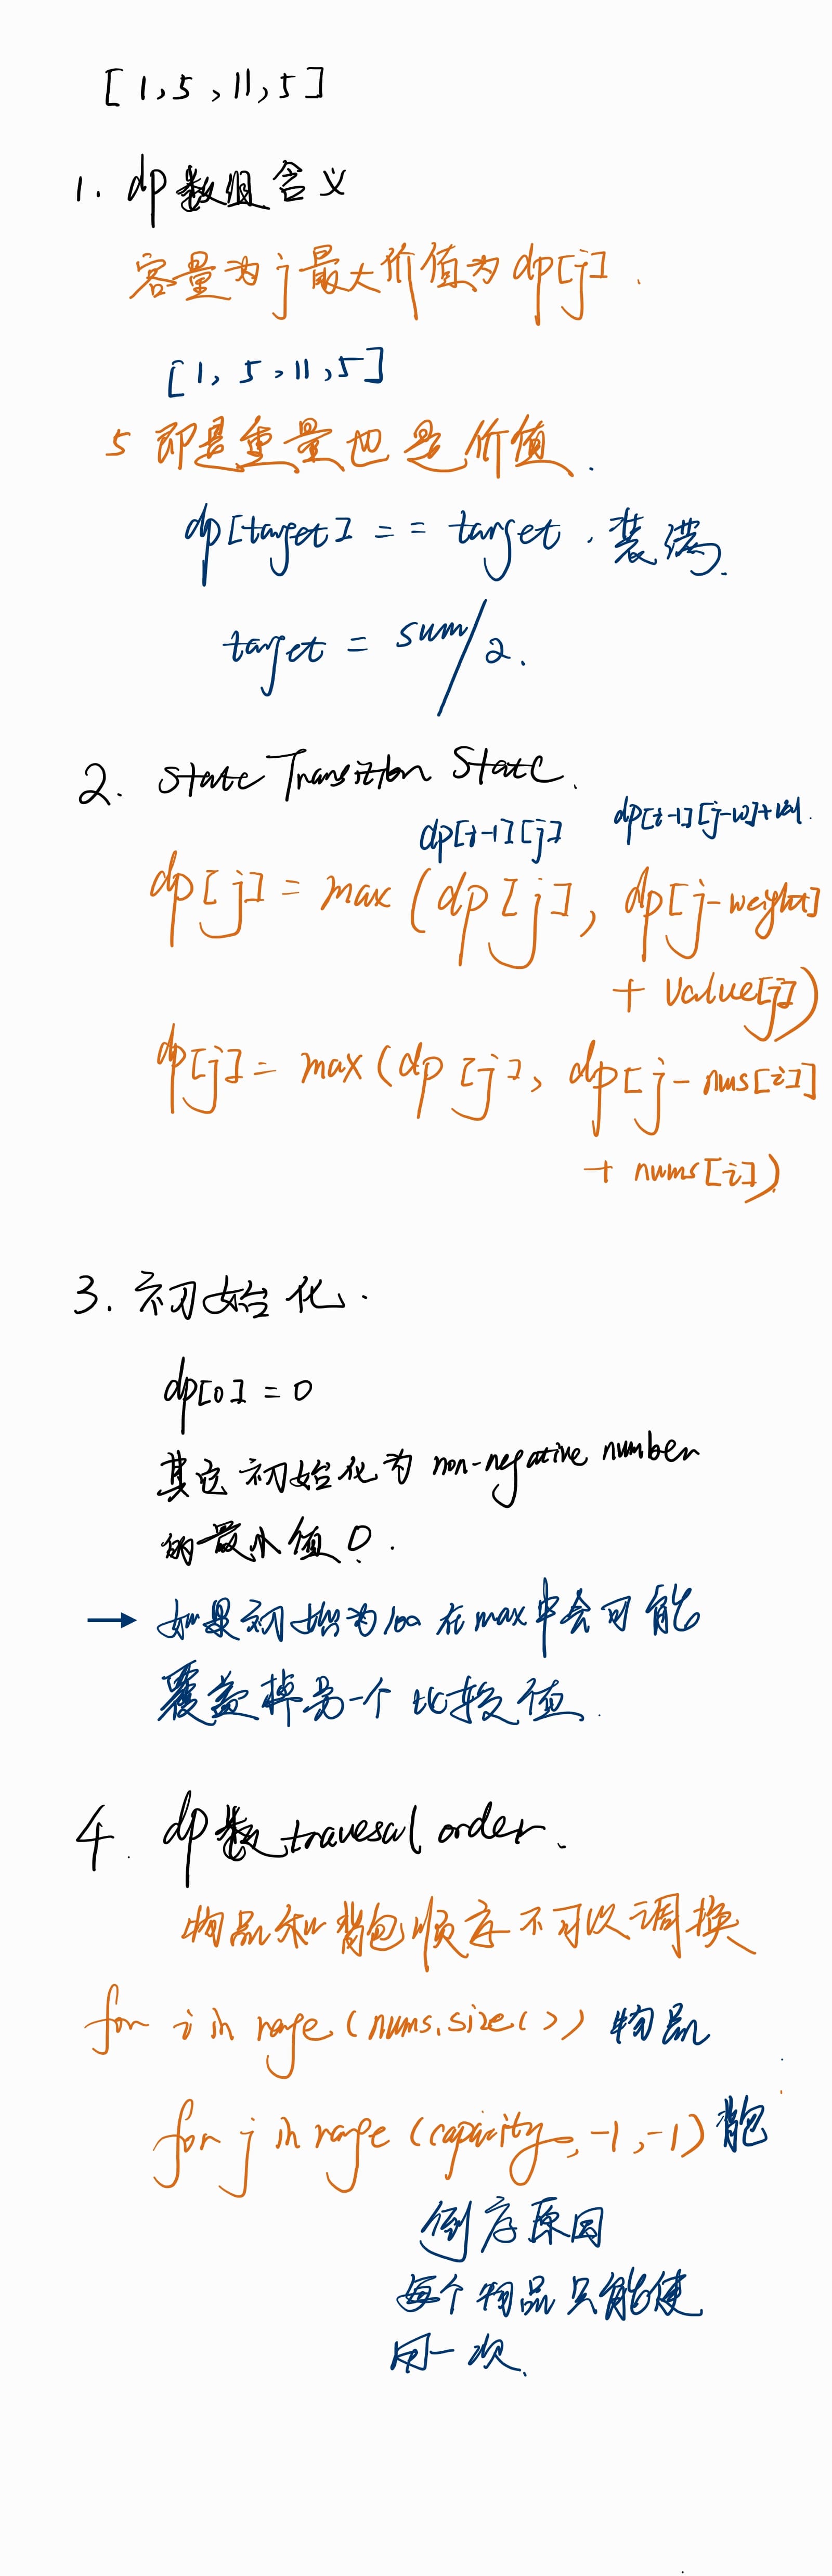 [1,5,11,5]
1. dp数组含义
容量为j最大价值为dp[j].
[1,5,11,5]
5 即是重量也是价值.
dp[target] == target . 装满.
target = sum/2.
2. State Transition State.
dp[i-1][j] dp[i-1][j-w]+val.
dp[j] = max(dp[j], dp[j-weight]
+ value[j])
dp[j] = max(dp[j], dp[j-nums[i]]
+ nums[i])
3. 初始化.
dp[0] = 0
其它初始化为 non-negative number
的最小值0.
→ 如果初始为100在max中会可能
覆盖掉另一个比较值.
4. dp数 travesal order.
物品和背包顺序不可以调换
for i in range(nums.size()) 物品
for j in range(capacity, -1, -1) 背包
倒序原因
每个物品只能使
用一次.